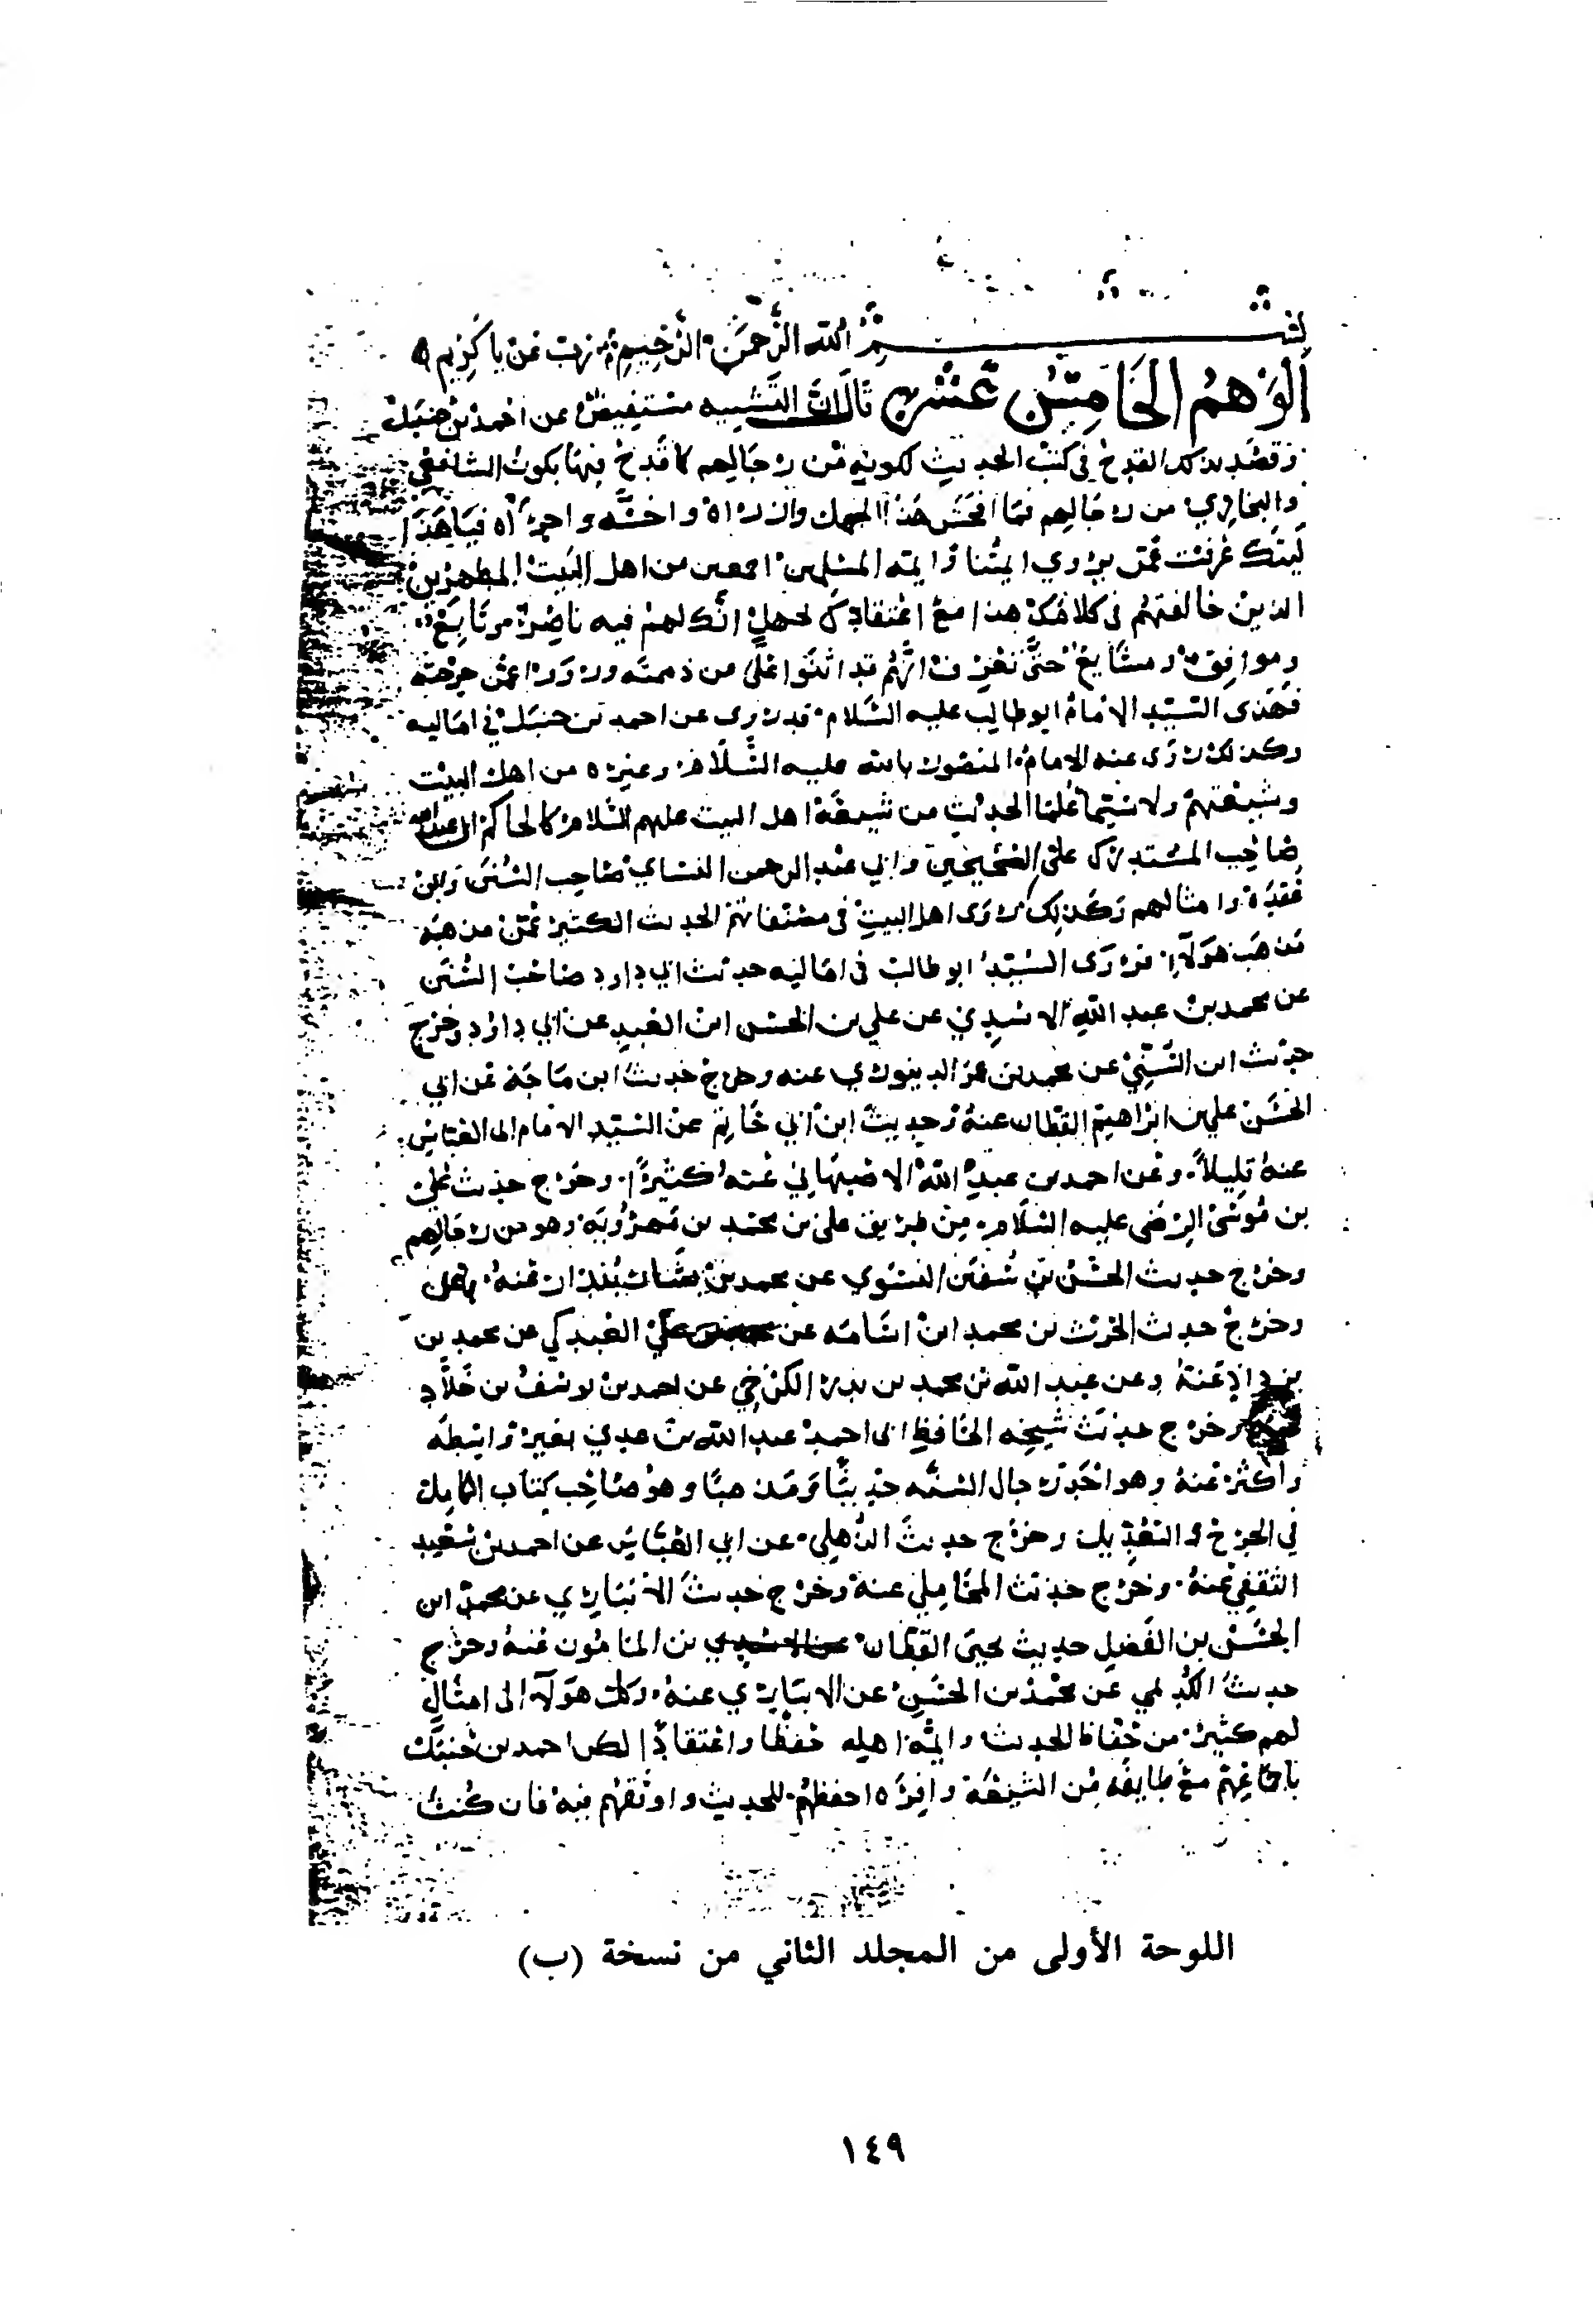 بسم الله الرحمن الرحيم رب عن يا كريم
الوهم الخامس عشر قال ان التشبيه مستفيض عن احمد بن حنبل
وقصد بذلك القدح في كتب الحديث لكونه من رجالهم كما قدح فيها بكون الشافعي
والبخاري من رجالهم فما افحش هذا الجهل وانزراه واخسه واجراه فيا هذا
ليتك عرفت عمن يروي ايمتنا وايمه المسلمين اجمعين من اهل البيت المطهرين
الذين خالفتهم في كلامك هذا مع اعتقادك لجهل انك لهم فيه ناصر ومتابع
وموافق ومشايع حتى تعرف انهم قد اثنوا على من ذممته ورووا عمن جرحته
فهذى السيد الامام ابو طالب عليه السلام قد روى عن احمد بن حنبل في اماليه
وكذلك روى عنه الامام المنصور بالله عليه السلام وغيره من اهل البيت
وشيعتهم ولا سيما علما الحديث من شيعة اهل البيت عليهم السلام كالحاكم ابي عبد الله
صاحب المستدرك على الصحيحين وابي عبد الرحمن النساي صاحب السنن وابن
عقدة وامثالهم وكذلك روى اهل البيت في مصنفاتهم الحديث الكثير عمن مذهبه
مذهب هولاء فروى السيد ابو طالب في اماليه حديث ابي داود صاحب السنن
عن محمد بن عبد الله الاسدي عن علي بن الحسن ابن العبد عن ابي داود وخرج
حديث ابن السني عن محمد بن عمر الدينوري عنه وخرج حديث ابن ماجه عن ابي
الحسن علي بن ابراهيم القطان عنه وحديث ابن ابي حاتم عن السيد الامام ابي العباس
عنه قليلا وعن احمد بن عبد الله الاصبهاني عنه كثيرا وخرج حديث علي
بن موسى الرضى عليه السلام من طريق علي بن محمد بن مهرويه وهو من رجالهم
وخرج حديث الحسن بن سفين النسوي عن محمد بن بشار بندار عنه
وخرج حديث الحرث بن محمد ابن اسامه عن علي العبدكي عن محمد بن
يزداد عنه وعن عبد الله بن محمد بن بدر الكرخي عن احمد بن يوسف بن خلاد
وخرج حديث شيخه الحافظ ابي احمد عبد الله بن عدي بغير واسطه
واكثر عنه وهو احد رجال السنه حديثا ومذهبا وهو صاحب كتاب الكامل
في الجرح والتعديل وخرج حديث الذهلي عن ابي العباس عن احمد بن سعيد
الثقفي عنه وخرج حديث المحاملي عنه وخرج حديث الانباري عن محمد ابن
الحسن بن الفضل حديث يحيى القطان بن المامون عنه وخرج
حديث الكديمي عن محمد بن الحسن عن الانباري عنه وكل هولاء الى امثال
لهم كثير من حفاظ الحديث وايمة اهله حفظا واعتقادا لكن احمد بن حنبل
باجماعهم مع طايفه من الشيعة وافره احفظهم للحديث واوثقهم فيه فان كنت
اللوحة الأولى من المجلد الثاني من نسخة (ب)
١٤٩